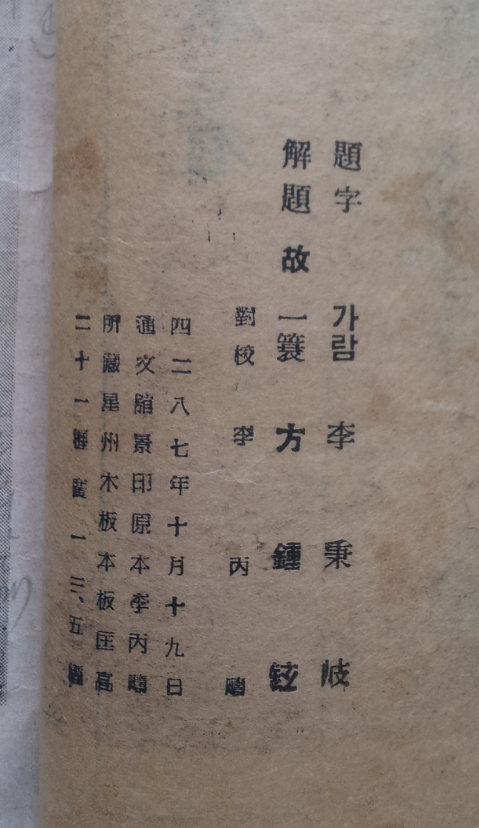 題字 가람 李秉岐
解題 故 一簑 方鍾鉉
對校 李丙疇
四二八七年十月十九日
通文館景印原本李丙疇
所藏星州木板本板匡高
二十一糎 一三、五糎